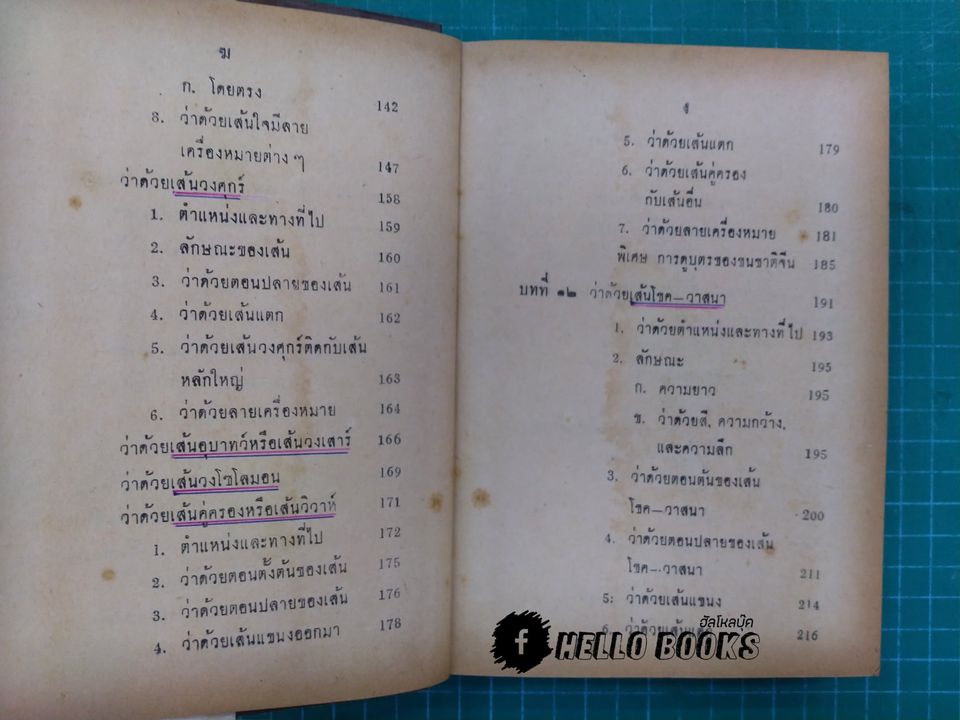 ฆ
ก. โดยตรง 142
8. ว่าด้วยเส้นใจมีลาย
เครื่องหมายต่าง ๆ 147
ว่าด้วยเส้นวงศุกร์ 158
1. ตำแหน่งและทางที่ไป 159
2. ลักษณะของเส้น 160
3. ว่าด้วยตอนปลายของเส้น 161
4. ว่าด้วยเส้นแตก 162
5. ว่าด้วยเส้นวงศุกร์ติดกับเส้น
หลักใหญ่ 163
6. ว่าด้วยลายเครื่องหมาย 164
ว่าด้วยเส้นอุบาทว์หรือเส้นวงเสาร์ 166
ว่าด้วยเส้นวงโซโลมอน 169
ว่าด้วยเส้นคู่ครองหรือเส้นวิวาห์ 171
1. ตำแหน่งและทางที่ไป 172
2. ว่าด้วยตอนตั้งต้นของเส้น 175
3. ว่าด้วยตอนปลายของเส้น 176
4. ว่าด้วยเส้นแขนงออกมา 178
ง
5. ว่าด้วยเส้นแตก 179
6. ว่าด้วยเส้นคู่ครอง
กับเส้นอื่น 180
7. ว่าด้วยลายเครื่องหมาย 181
พิเศษ การดูบุตรของชนชาติจีน 185
บทที่ ๑๒ ว่าด้วยเส้นโชค—วาสนา 191
1. ว่าด้วยตำแหน่งและทางที่ไป 193
2. ลักษณะ 195
ก. ความยาว 195
ข. ว่าด้วยสี, ความกว้าง,
และความลึก 195
3. ว่าด้วยตอนต้นของเส้น
โชค—วาสนา 200
4. ว่าด้วยตอนปลายของเส้น
โชค—วาสนา 211
5: ว่าด้วยเส้นแขนง 214
6. ว่าด้วยเส้น 216
ฮัลโหลบุ๊ค
f HELLO BOOKS